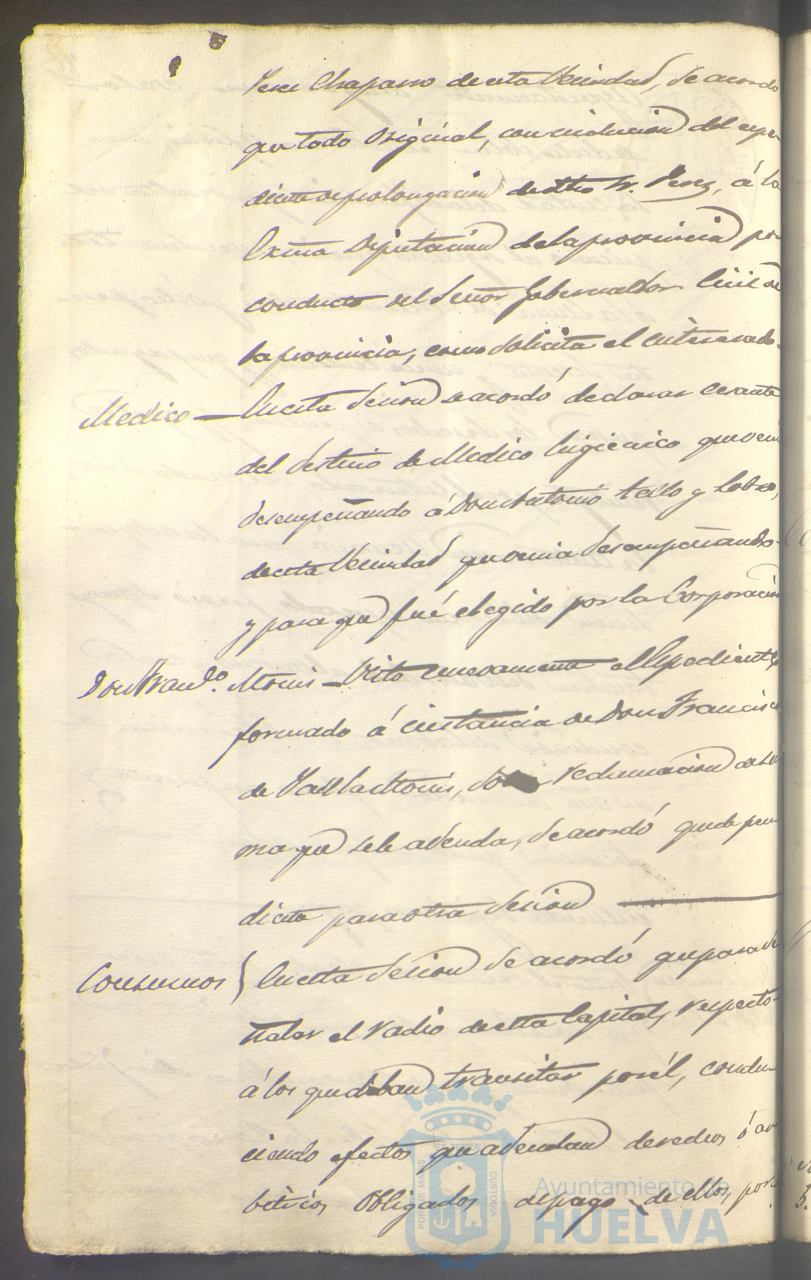 Perez Chaparro de esta Vecindad, se acordó
que todo Original, con inclusion del espe
diente de prolongacion de dho Sr. Perez, á la
Exma Diputacion de la provincia por
conducto del Señor Gobernador Civil de
la provincia, como solicita el interesado.
Medico — En esta Sesion se acordó declarar cesante
del destino de Medico higienico que venia
desempeñando á Don Antonio Tello y Lobo,
de esta Vecindad que venia desempeñando
y para que fué elegido por la Corporacion
Don Franco. Monis — Visto nuevamente el Espediente
formado á instancia de Don Francisco
de Monis, reclamacion de
ma que se le adeuda, se acordó quede pen
diente para otra Sesion
Consumos } En esta Sesion se acordó que para se
ñalar el radio de esta Capital, respecto
á los que deban transitar por él, condu
ciendo efectos que adeudan derechos ó ar
bitrios, Obligados al pago de ellos, por
Ayuntamiento de
HUELVA
PORTUS MARIS
CUSTODIA